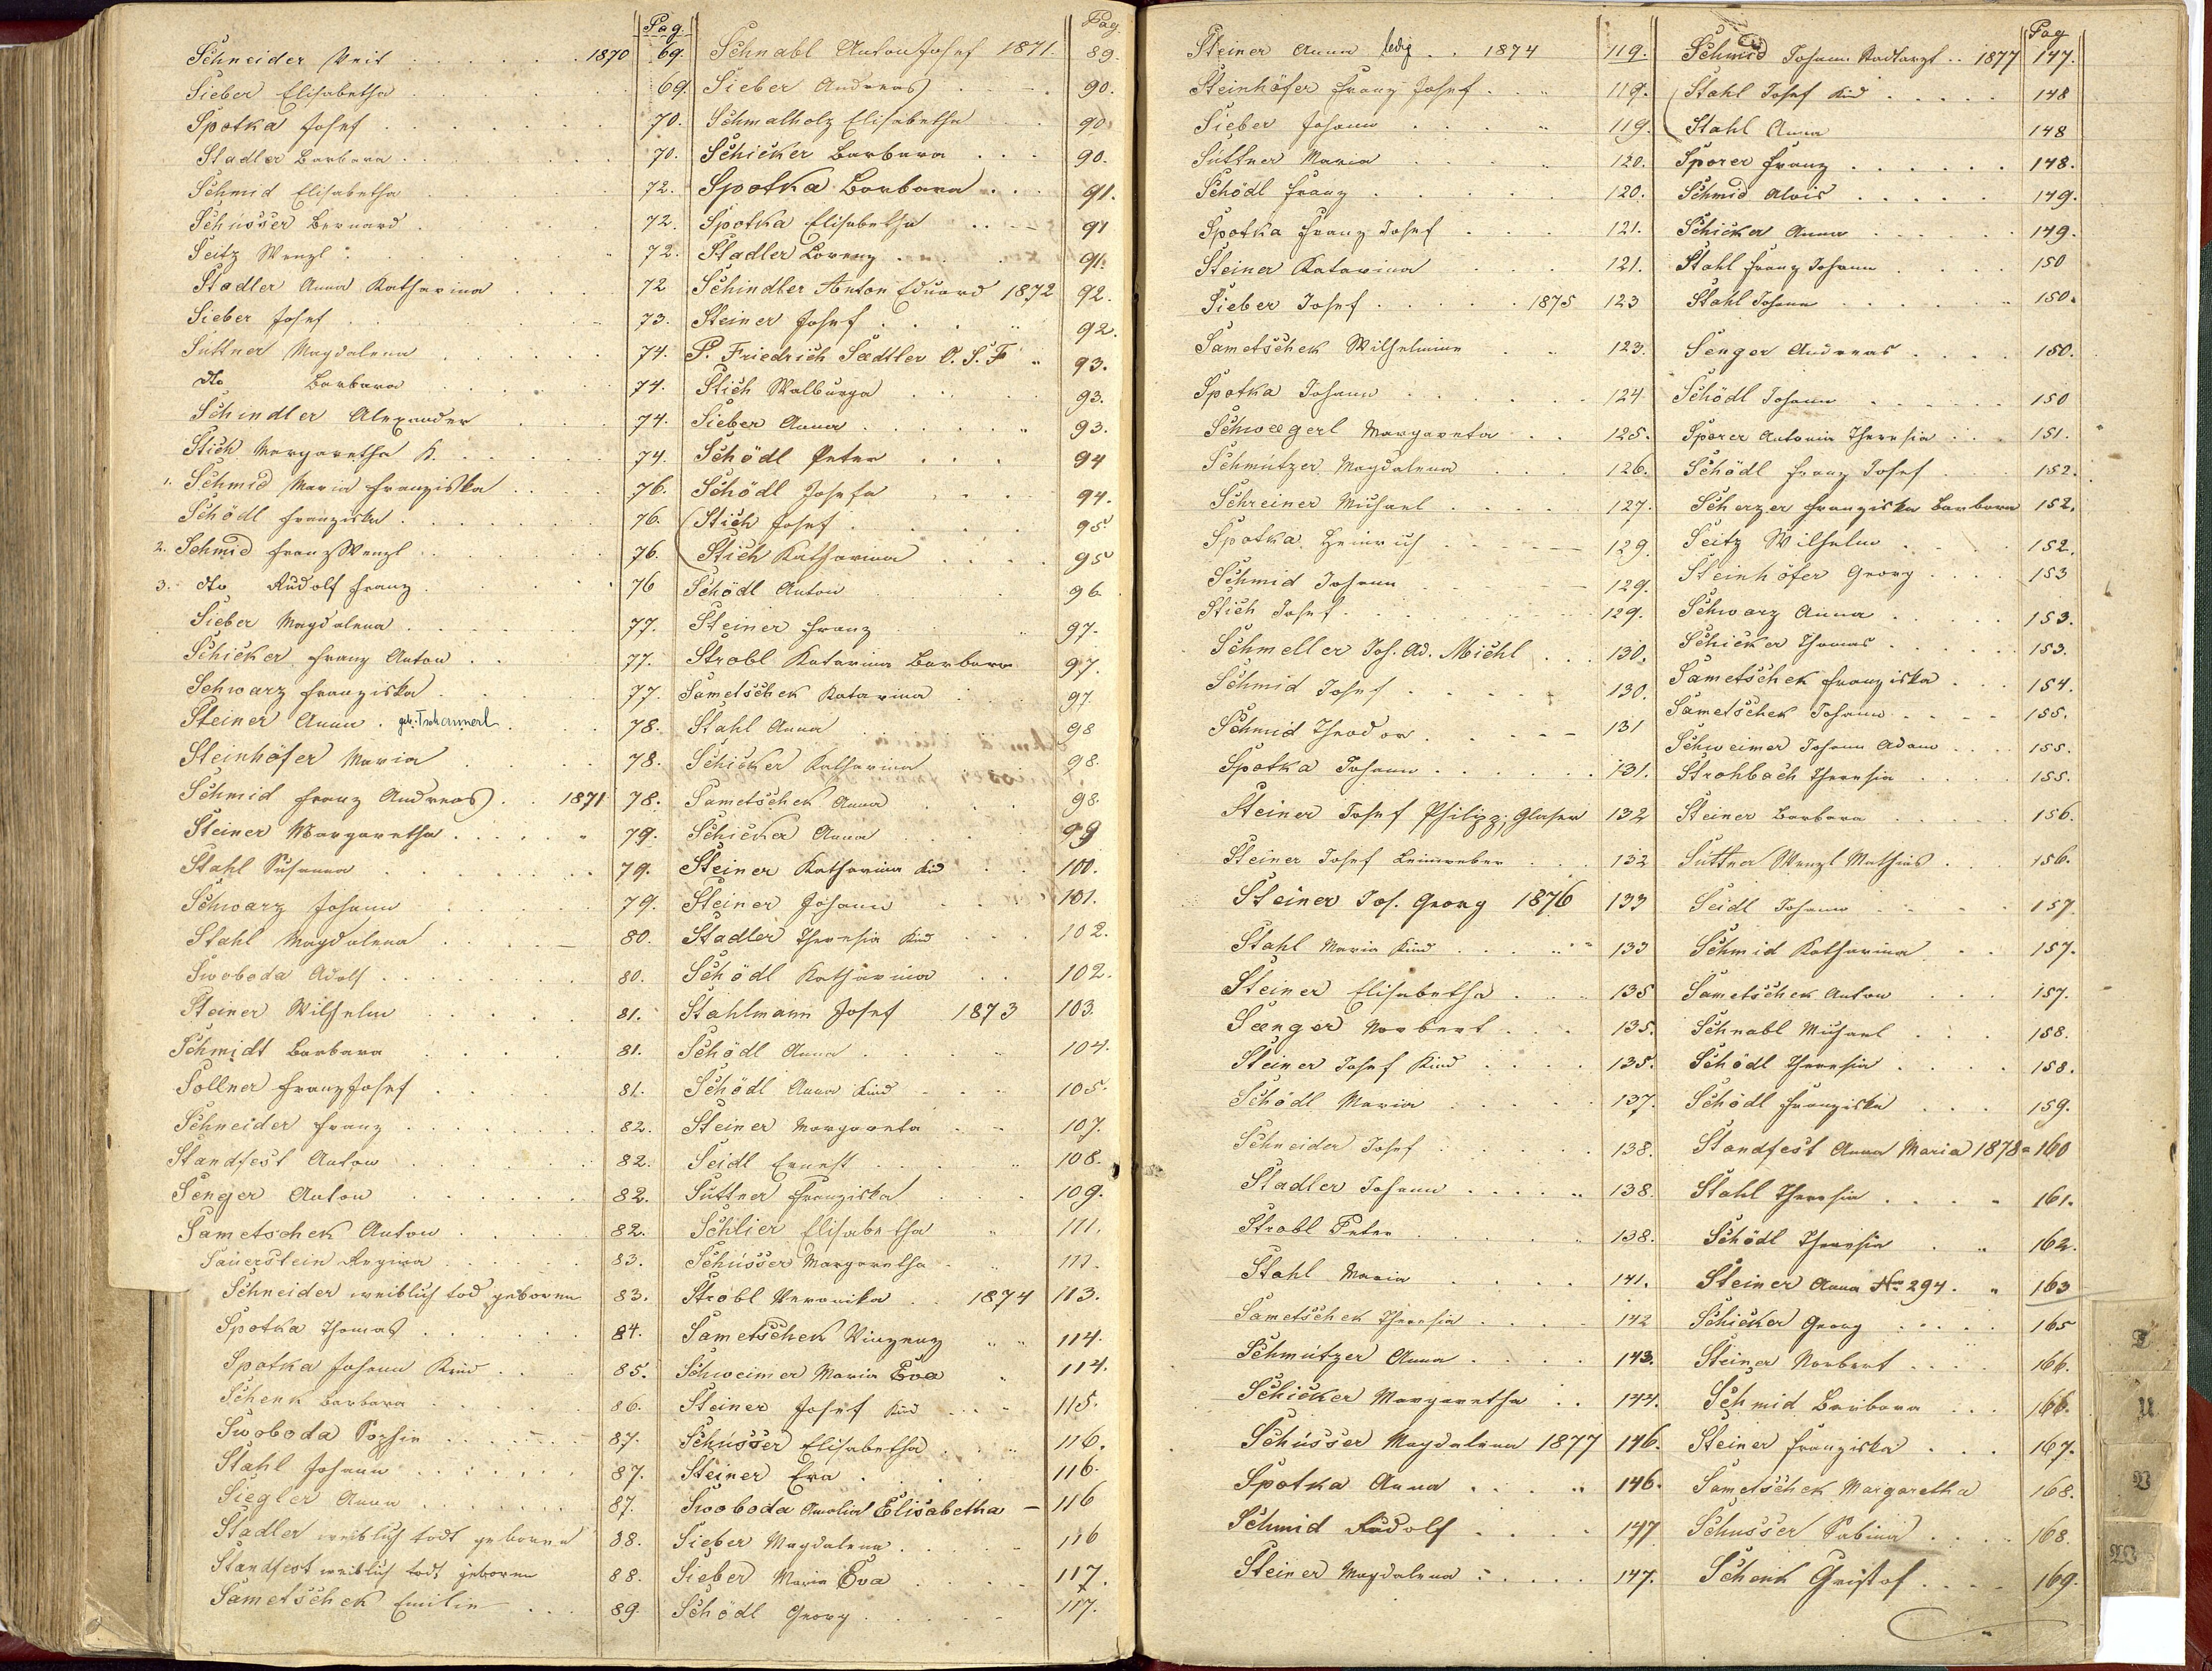 Pag.
Schneider Veit . . . . . . 1870 69.
Sieber Elisabetha . . . . . . 69
Spotka Josef . . . . . . 70.
Stadler Barbara . . . . . . 70.
Schmid Elisabetha . . . . 72.
Schusser Bernard . . . . 72.
Seitz Wenzl . . . . . . 72.
Stadler Anna Katharina . . . 72
Sieber Josef . . . . . . 73.
Suttner Magdalena . . . . . 74.
dto Barbara . . . . . 74.
Schindler Alexander . . . . 74.
Stich Margaretha K. . . . . . 74.
1. Schmid Maria Franziska . . . . 76.
Schödl Franziska . . . . . . 76.
2. Schmid Franz Wenzl . . . . . . 76.
3. dto Rudolf Franz . . . . . 76
Sieber Magdalena . . . . . . 77.
Schicker Franz Anton . . . . 77.
Schwarz Franziska . . . . . 77.
Steiner Anna . geb. Tschannerl . . 78.
Steinhöfer Maria . . . . . 78.
Schmid Franz Andreas . . 1871 78.
Steiner Margaretha . . . . . " 79.
Stahl Susanna . . . . . . . 79.
Schwarz Johann . . . . . 79.
Stahl Magdalena . . . . — 80.
Swoboda Adolf . . . . . . 80.
Steiner Wilhelm . . . . . 81.
Schmidt Barbara . . . . . 81.
Sollner Franz Josef . . . . . 81.
Schneider Franz . . . . . . . 82.
Standfest Anton . . . . . . . 82.
Senger Anton . . . . . . . 82.
Sametschek Anton . . . . . 82.
Sauerstein Regina . . . . . 83.
Schneider weiblich tod geboren 83.
Spotka Thomas . . . . . . 84.
Spotka Johann Kind . . . 85.
Schenk Barbara . . . . . 86.
Swoboda Sophie . . . . . . 87.
Stahl Johann . . . . . . . 87.
Siegler Anna . . . . . . . 87.
Stadler weiblich todt geboren 88.
Standfest weiblich todt geboren 88.
Sametschek Emilie . . . 89.
Pag.
Schnabl Anton Josef 1871. 89.
Sieber Andreas . . — . 90.
Schmalholz Elisabetha . . 90.
Schicker Barbara . . . 90.
Spotka Barbara . . . 91.
Spotka Elisabetha . . — 91
Stadler Lorenz . . . . 91.
Schindler Anton Eduard 1872 92.
Steiner Josef . . . . " 92.
P. Friedrich Saedtler O. S. F " 93.
Stich Walburga . . . . 93.
Sieber Anna . . . . . " 93.
Schödl Peter . . . . 94
Schödl Josefa . . . . 94.
Stich Josef . . . . . 95
Stich Katharina . . . . 95
Schödl Anton . . . . 96.
Steiner Franz . . . " 97.
Strobl Katarina Barbara 97.
Sametschek Katarina . . 97.
Stahl Anna . . . . 98
Schicker Katharina . . . 98.
Sametschek Anna . . . 98.
Schicker Anna . . . 99
Steiner Katharina Kind . . 100.
Steiner Johann . . . 101.
Stadler Theresia Kind . . . 102.
Schödl Katharina . . . 102.
Stahlmann Josef 1873 103.
Schödl Anna . . . . . 104.
Schödl Anna Kind . . . 105.
Steiner Margareta . . — 107.
Seidl Ernest . . . . " 108.
Suttner Franziska . . . 109.
Schlier Elisabetha " 111.
Schusser Margaretha . . " 111.
Strobl Veronika . . 1874 113.
Sametschek Vinzenz " " 114.
Schweimer Maria Eva " 114.
Steiner Josef Kind . . . 115.
Schusser Elisabetha . . . " 116.
Steiner Eva . . . . . 116.
Swoboda Amalia Elisabetha — 116
Sieber Magdalena . . . — 116
Sieber Maria Eva . . . . . 117.
Schödl Georg . . . . . 117.
Steiner Anna ledig . . 1874 119.
Steinhöfer Franz Josef . . " 119.
Sieber Johann . . . . " 119.
Suttner Maria . . . . " 120.
Schödl Franz . . . . . 120.
Spotka Franz Josef . . . 121.
Steiner Katarina . . . 121.
Sieber Josef . . . . . 1875 123
Sametschek Wilhelmine . . " 123.
Spotka Johann . . . . . . 124
Schwaegerl Margareta . . 125.
Schmutzer Magdalena . . . 126.
Schreiner Michael . . . . 127.
Spotka Heinrich . . . — — 129.
Schmid Johann . . . — — 129.
Stich Josef . . . . . 129.
Schmeller Jos. Ad. Michl . . . 130.
Schmid Josef . . . . . 130.
Schmid Theodor . . . — — 131
Spotka Johann . . . . . . 131.
Steiner Josef Philipp; Glaser 132
Steiner Josef Leinweber . . . 132
Steiner Jos. Georg 1876 133
Stahl Maria Kind . . . " " 133
Steiner Elisabetha . . . 135
Saenger Norbert . . . 135.
Steiner Josef Kind . . . . 135.
Schödl Maria . . . . . 137.
Schneider Josef . . . . . 138.
Stadler Johann . . . . " 138.
Strobl Peter . . . . . " 138.
Stahl Maria . . . . 141.
Sametschek Theresia . . . . 142
Schmutzer Anna . . . . 143.
Schicker Margaretha . . . 144.
Schusser Magdalena 1877 146.
Spotka Anna . . . . " 146.
Schmid Rudolf . . . . 147
Steiner Magdalena . . . . . 147.
Pag
Schmid Johann Stadtarzt . . 1877 147.
Stahl Josef Kind . . . . . 148
Stahl Anna 148
Sporer Franz . . . . . . 148.
Schmid Alois . . . . . 149.
Schicker Anna . . . . . 149.
Stahl Franz Johann . . . . 150
Stahl Johann . . . . . " 150.
Senger Andreas . . . . 150.
Schödl Johann . . . . . 150
Sporer Antonia Theresia . . . 151.
Schödl Franz Josef . . . 152.
Scherzer Franziska Barbara 152.
Seitz Wilhelm . . . . 152.
Steinhöfer Georg . . . 153
Schwarz Anna . . . . . 153.
Schicker Thomas . . . . . 153.
Sametschek Franziska . . . 154.
Sametschek Johann . . . . 155.
Schweimer Johann Adam . . . 155.
Strohbach Theresia . . . . 155.
Steiner Barbara . . . . . 156.
Suttner Wenzl Mathias . . 156.
Seidl Johann . . . . 157.
Schmid Katharina . . . 157.
Sametschek Anton . . . 157.
Schnabl Michael . . . 158.
Schödl Theresia . . . . . 158.
Schödl Franziska . . . 159.
Standfest Anna Maria 1878 " 160
Stahl Theresia . . . . " 161.
Schödl Theresia . . " 162.
Steiner Anna No 294 . " 163
Schicker Georg . . . . . 165
Steiner Norbert . . . . 166.
Schmid Barbara . . . 166.
Steiner Franziska . . . 167.
Sametschek Margaretha 168.
Schusser Sabina . . . . 168.
Schenk Gristof . . . . 169.
T
U
V
W